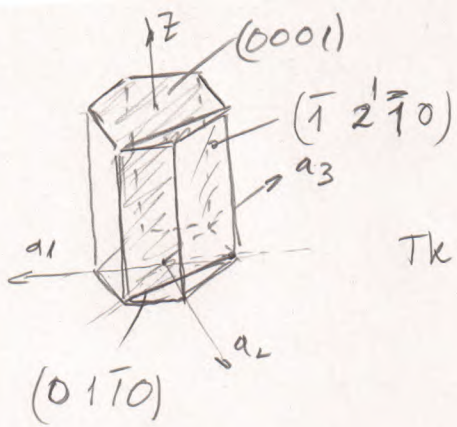 z
(0001)
(1̄ 2 1̄ 0)
a3
a1
Tk
a2
(0 1 1̄ 0)